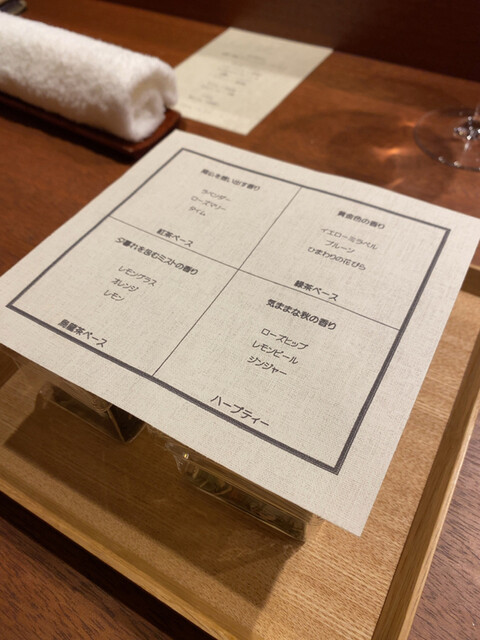 を想い出す香り
ラベンダー
ローズマリー
タイム
紅茶ベース
黄金色の香り
イエローミラベル
プルーン
ひまわりの花びら
緑茶ベース
夕暮れを包むミストの香り
レモングラス
オレンジ
レモン
烏龍茶ベース
気ままな秋の香り
ローズヒップ
レモンピール
ジンジャー
ハーブティー